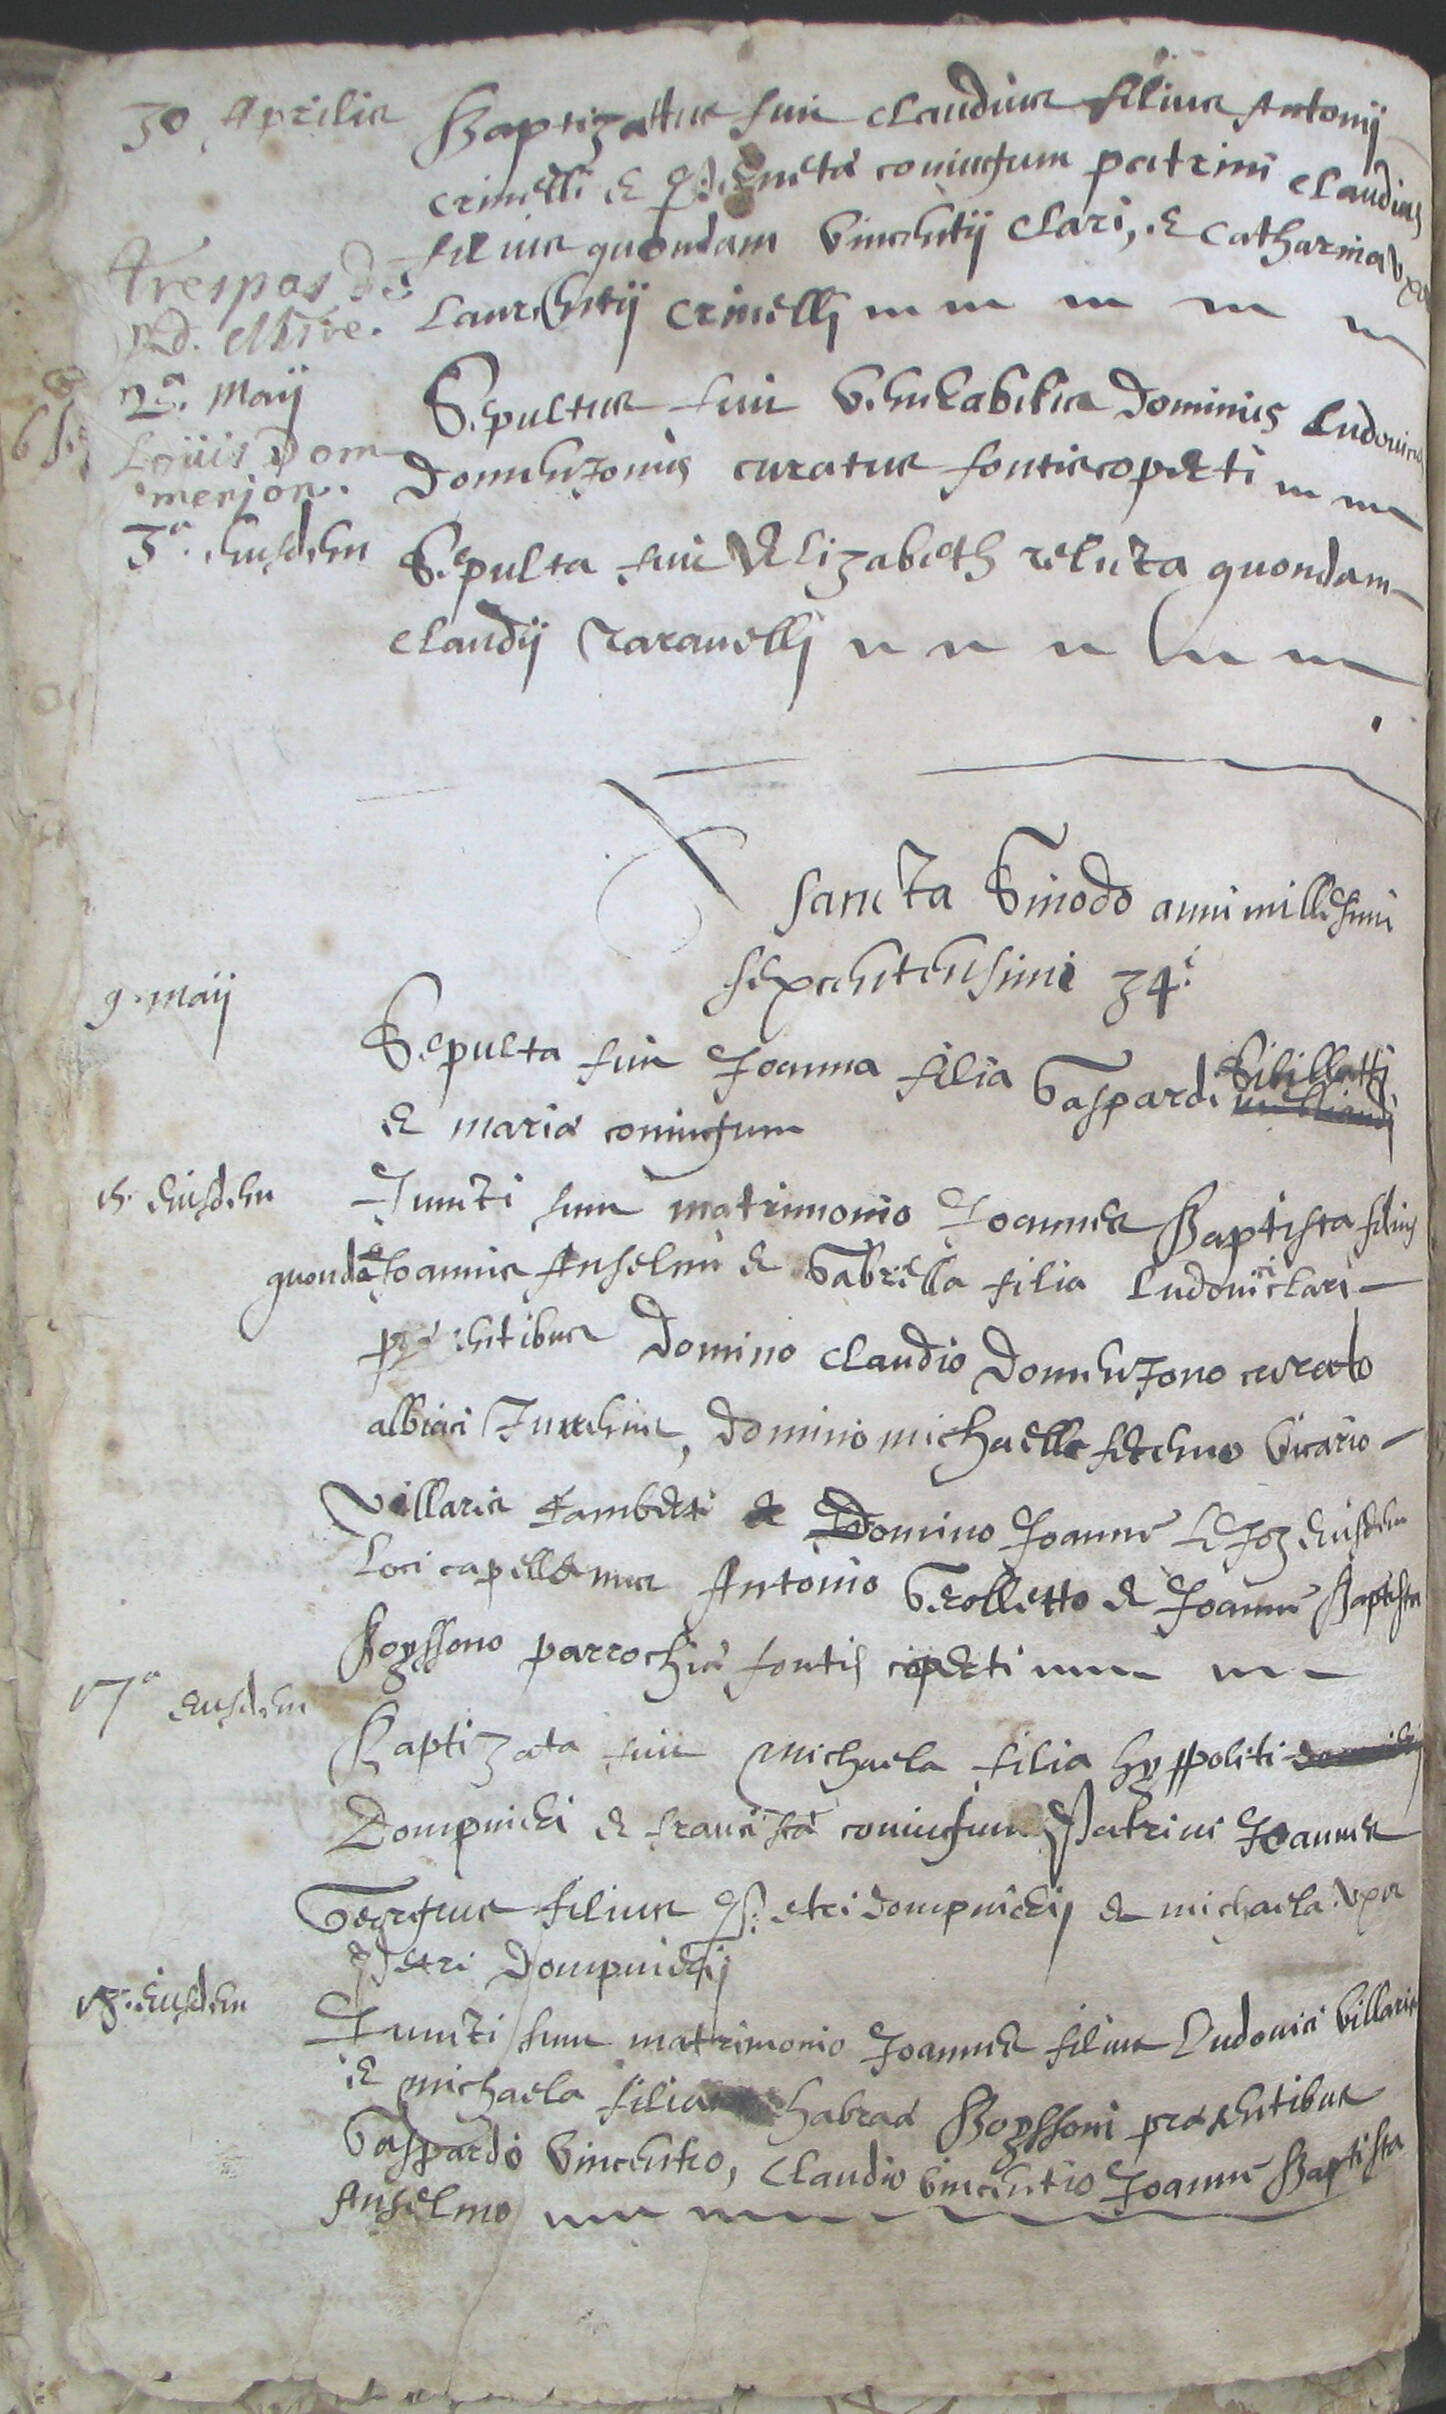 30 Aprilis Baptizattus fuit Claudius filius Antonij
Crinelli & coniugum patrini Claudius
filius quondam Vincentij Clari, & Catharina uxor
Laurentij Crinelli
Trespas de
Rd. Mtre.
2a. Maij Sepultus fuit Venerabilis Dominus Ludovicus
Loüis Dom
menjon. Domenzonus curatus fontiscoperti
3a. eiusdem Sepulta fuit Elizabeth relicta quondam
Claudij Raravelli
Sancta Sinodo anni millesimi
sexcentensimi 34i
9. Maij Sepulta fuit Joanna filia Gaspardi Sibillatti
& Mariæ coniugum
15. eiusdem Juncti sunt matrimonio Joannes Baptista filius
quondã Joannis Anselmi & Gabriella filia Ludovici Clari
præsentibus Domino Claudio Domenzono curato
albiaci Juvenis, Domino Michaelle vicario
Villaris Gamberti & Domino Joanne eiusdem
loci capellanus Antonio Grolletto & Joanne Baptista
Boyssono parrochiæ fontis coperti
17a eiusdem Baptizata fuit Michaela filia Hyppoliti
Dompnieri & Franciscæ coniugum Patrini Joannes
Georgius filius Petri Dompnierij & Michaela uxor
Petri Dompnierij
18. eiusdem Juncti sunt matrimonio Joannes filius Ludovici Villaris
& Michaela filia habraæ Boyssoni præsentibus
Gaspardo Vincentio, Claudio Vincentio Joanne Baptista
Anselmo